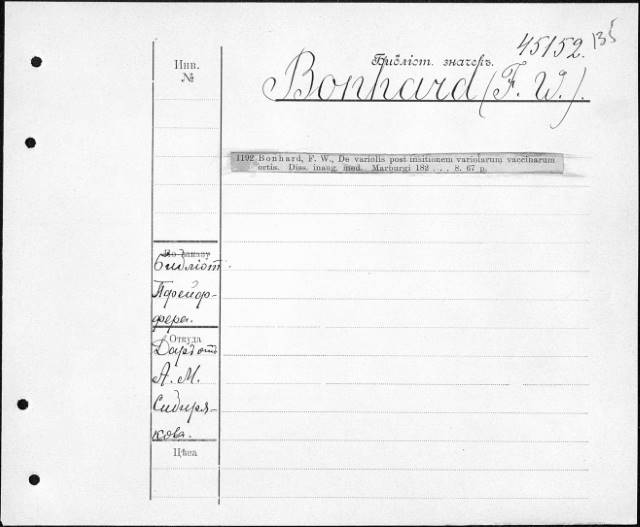 45152. 135
Инв.
№
Библіот. значокъ.
Bonhard (F. W.).
1192 Bonhard, F. W., De variolis post insitionem variolarum vaccinarum
ortis. Diss. inaug. med. Marburgi 182 . . . 8. 67 p.
По заказу
Библіот.
Пфейф-
фера.
Откуда
Даръ отъ
А. М.
Сибиря-
кова.
Цѣна